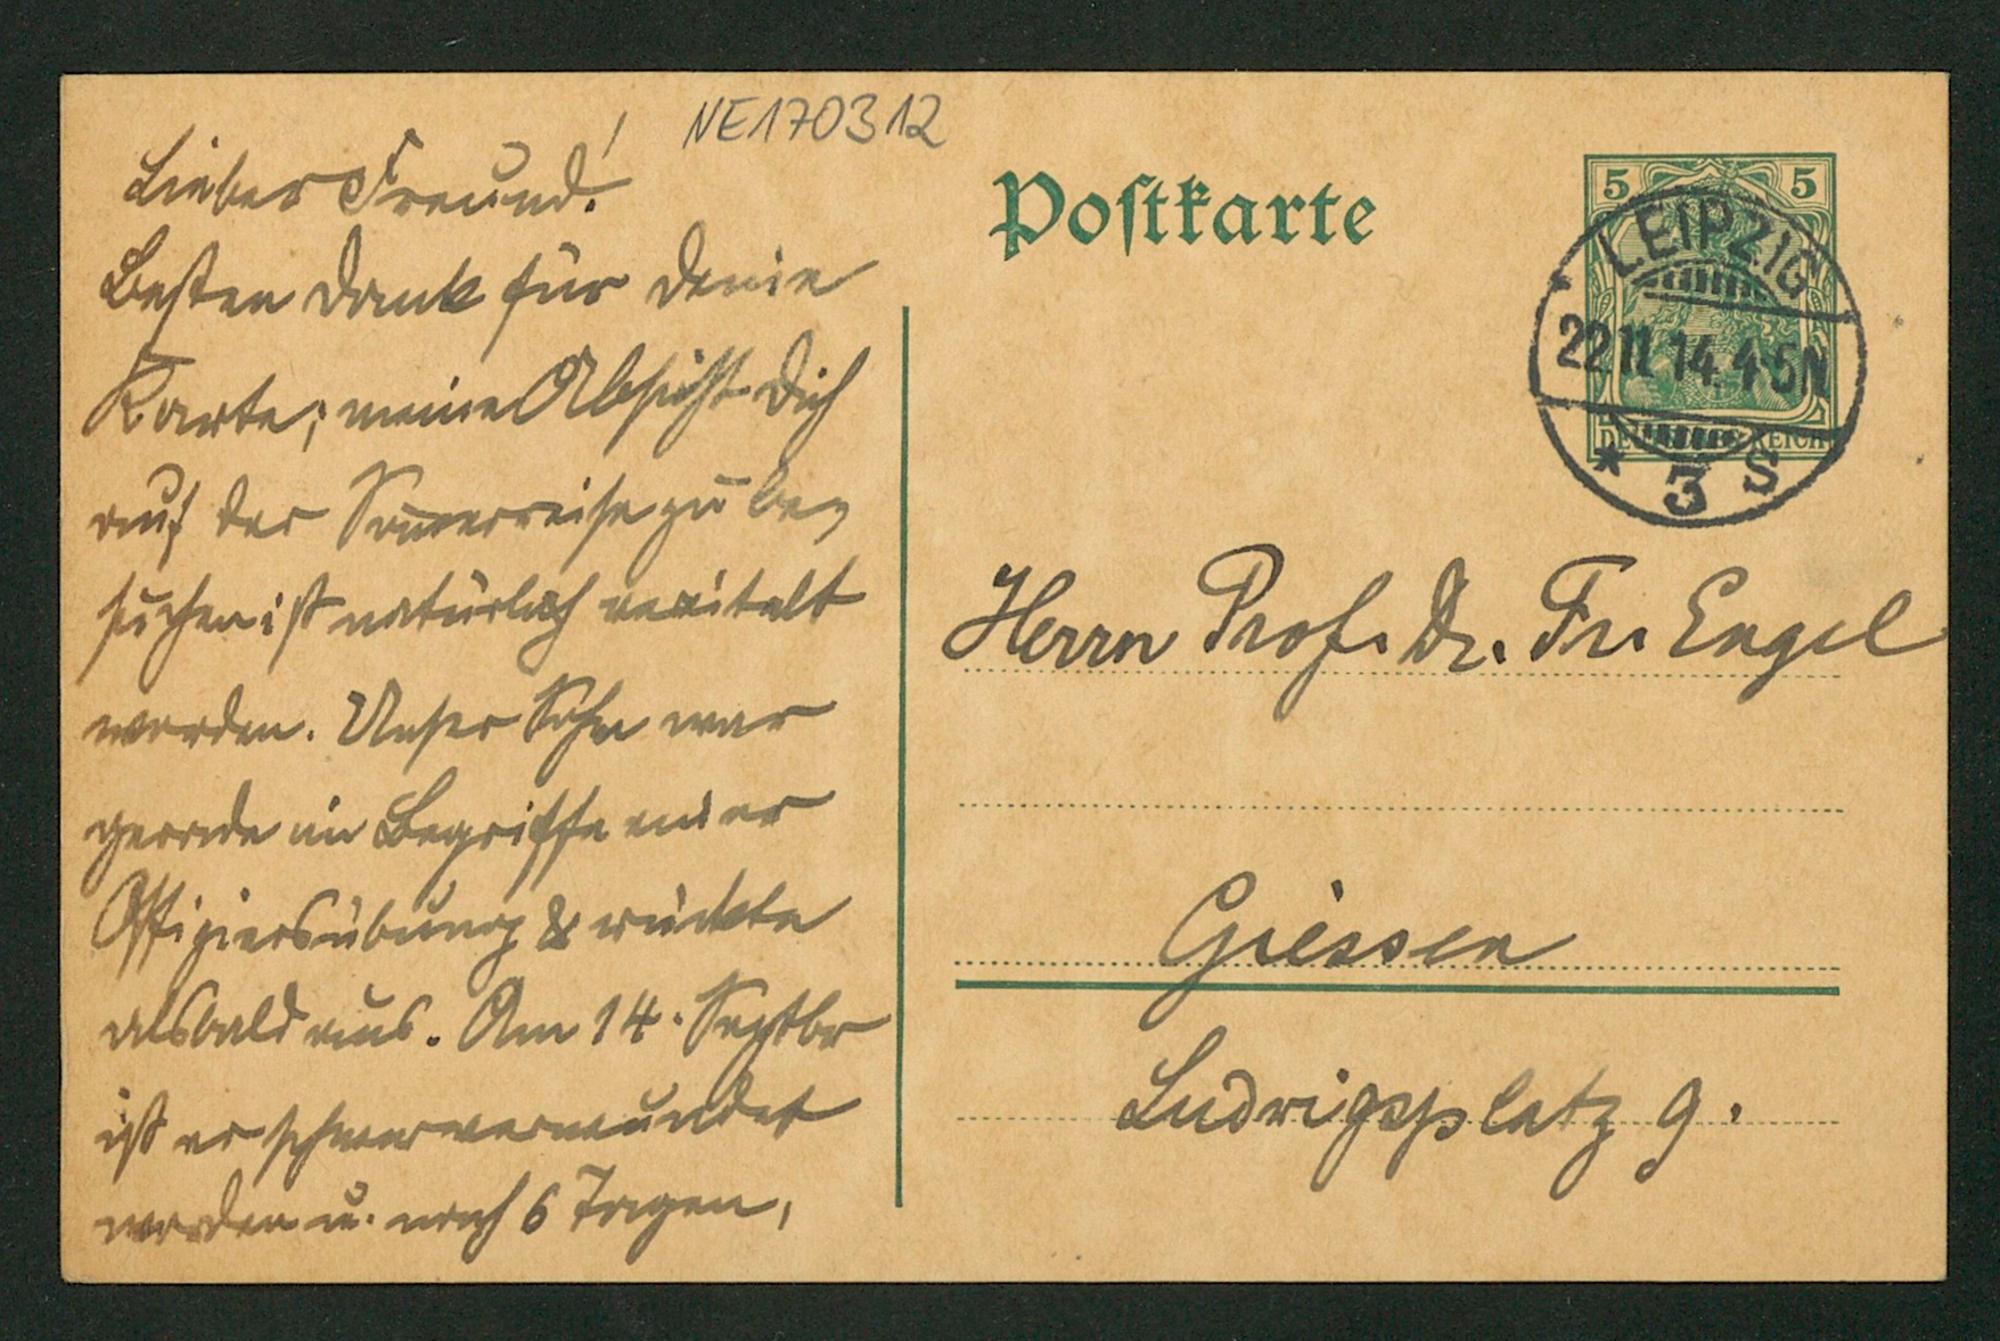 NE170312
Lieber Freund!
Besten Dank für Deine
Karte; meine Absicht Dich
auf der Sommerreise zu be-
suchen ist natürlich vereitelt
worden. Unser Sohn war
gerade im Begriffe einer
Offiziersübung & rückte
alsbald aus. Am 14. Septbr
ist er schwer verwundet
worden u. nach 6 Tagen,
Postkarte
5 5
DEUTSCHES REICH
LEIPZIG
22.11.14.4-5N
* 3 S
Herrn Prof. Dr. Fr. Engel
Giessen
Ludwigsplatz 9.